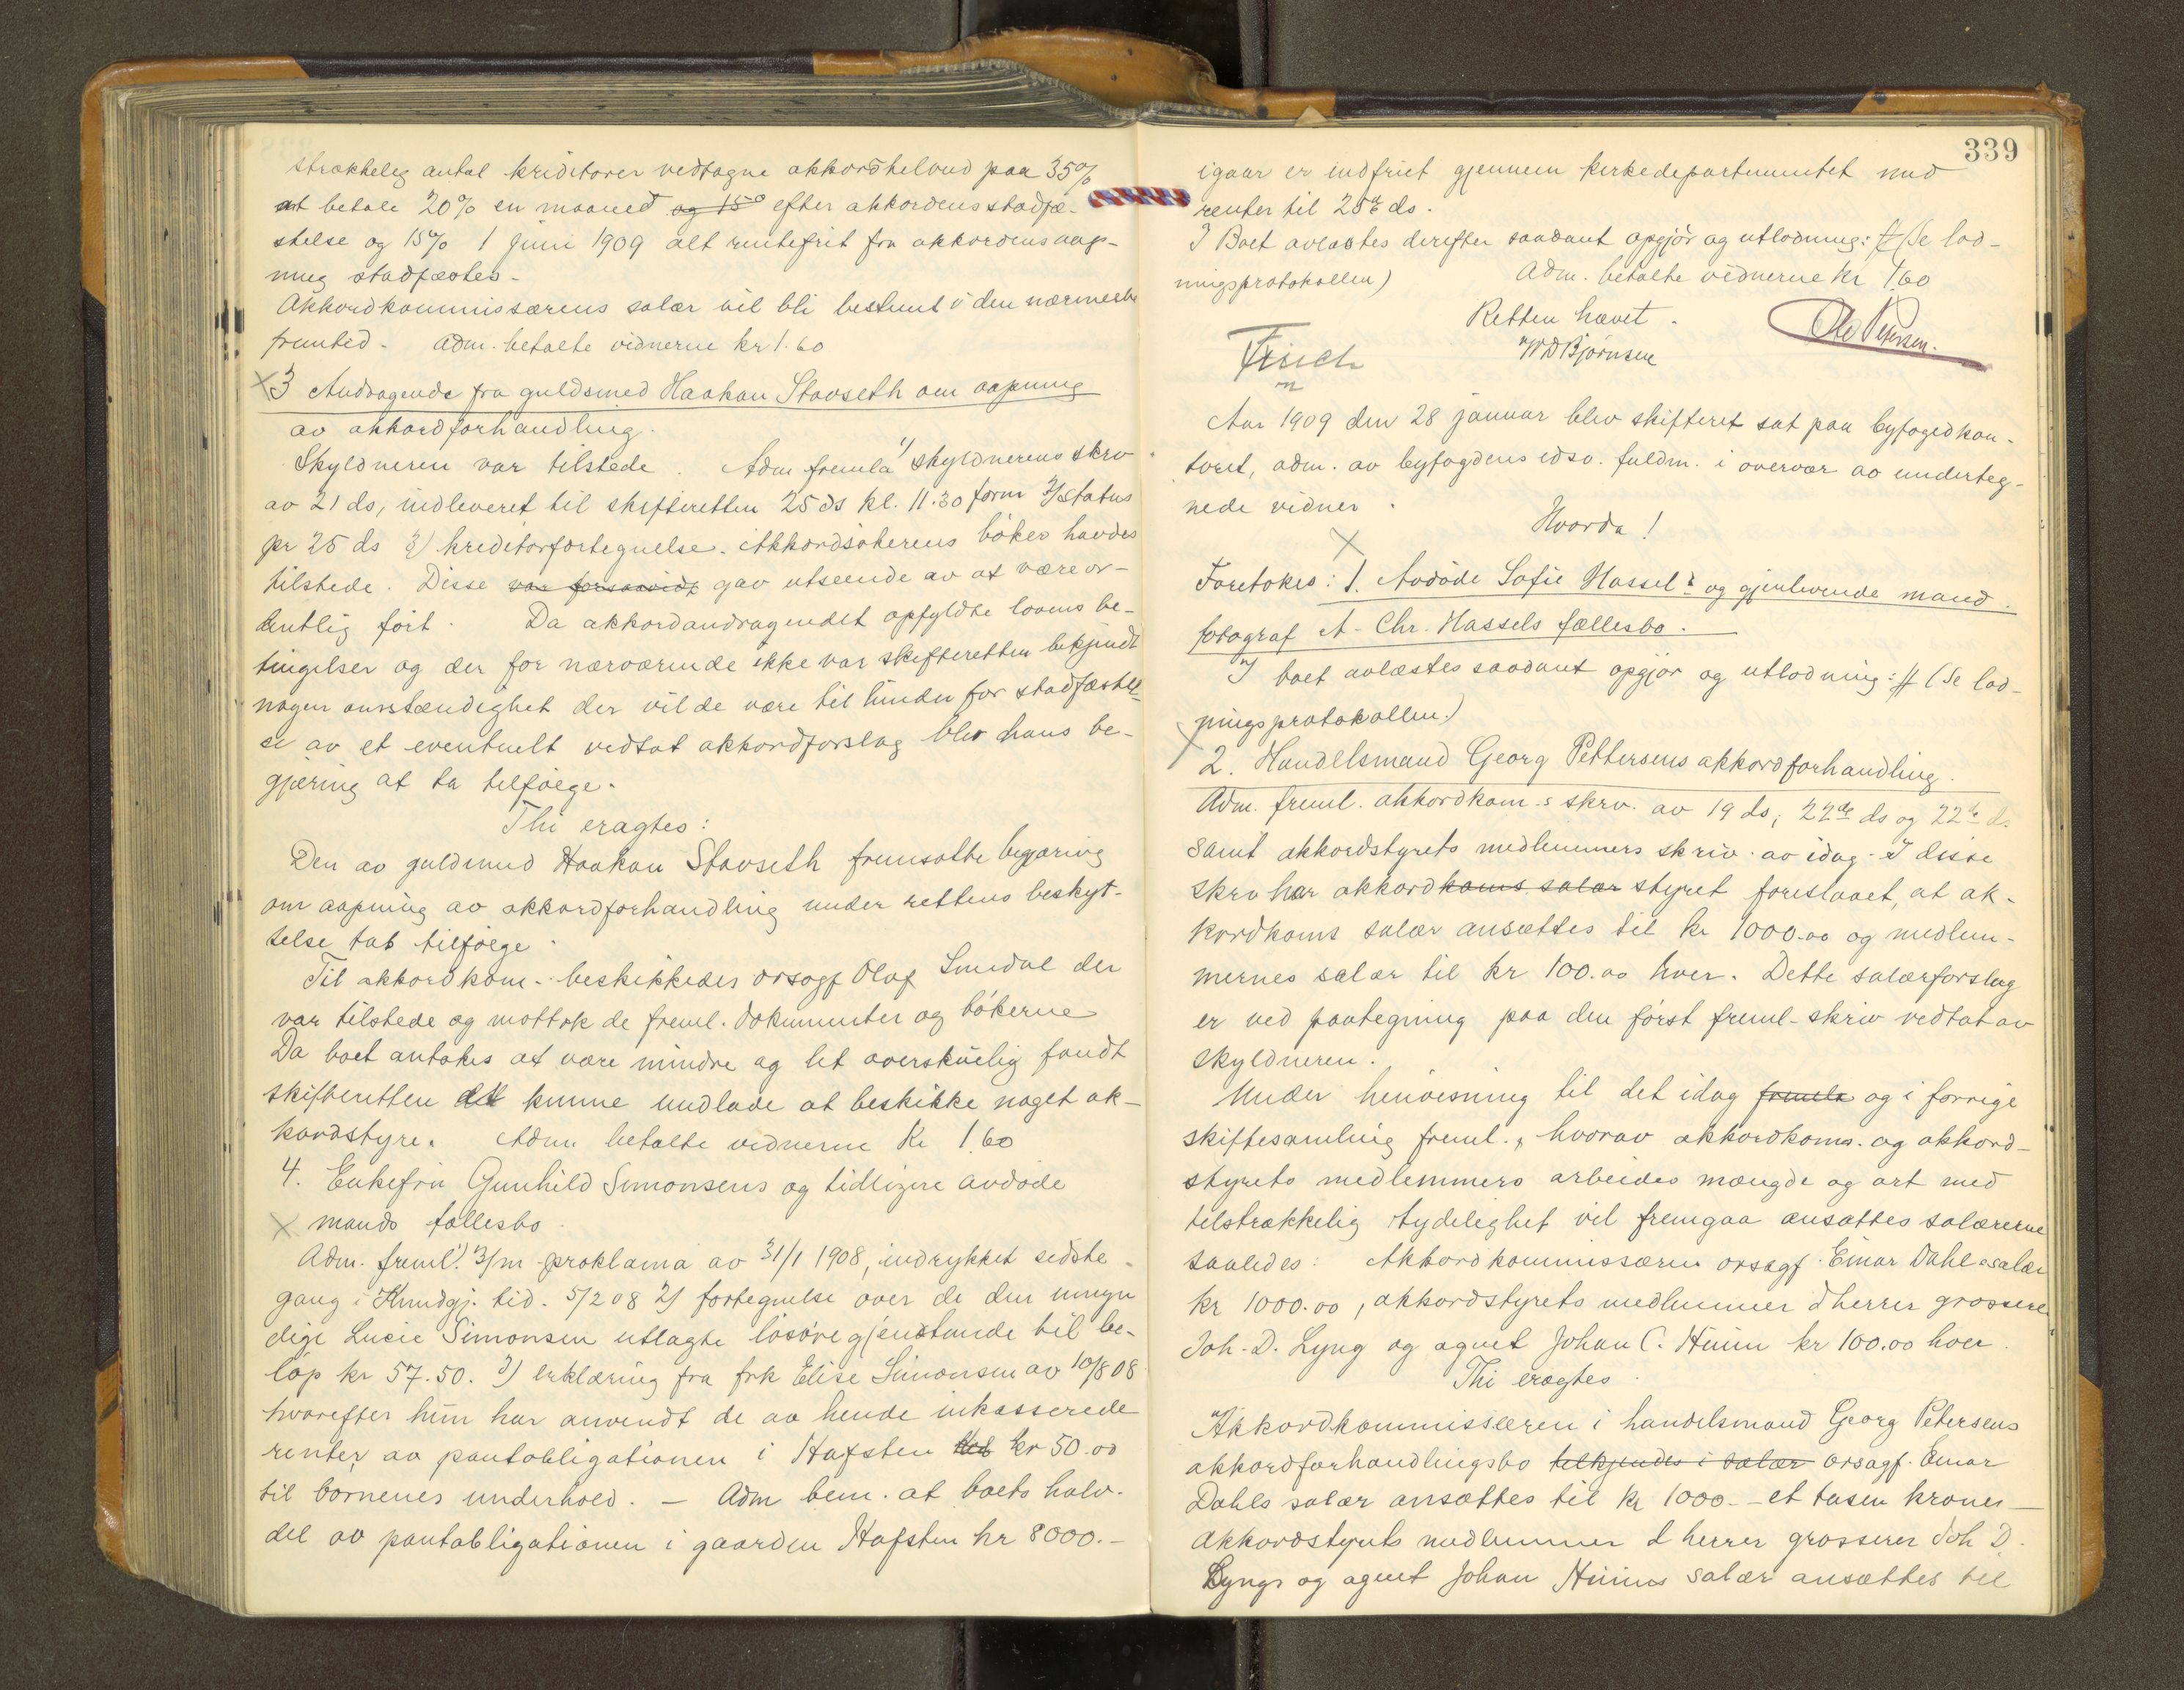 strækkelig antal kriditorer vedtagne akkordtilbud paa 35%
at betale 20% en maaned og 15% efter akkordens stadfæ-
stelse og 15% 1 juni 1909 alt rentefrit fra akkordens aap-
ning stadfæstes.
Akkordkommissærens salær vil bli bestemt i den nærmeste
fremtid. Adm. betalte vidnerne kr 1.60
3 Andragende fra guldsmed Haakan Stavseth om aapning
av akkordforhandling.
Skyldneren var tilstede. Adm fremla 1/ skyldnerens skrv
av 21 ds, indleveret til skifteretten 25 ds kl. 11.30 form 2/ Status
pr 25 ds 3) kreditorfortegnelse. Akkordsøkerens bøker havdes
tilstede. Disse var forsaavidt gav utseende av at være or-
dentlig ført. Da akkordandragendet opfyldte lovens be-
tingelser og der for nærværende ikke var skifteretten bekjendt
nogen omstændighet der vilde være til hinder for stadfæstel-
se av et eventuelt vedtat akkordforslag blev hans be-
gjæring at ta tilfølge.
Thi eragtes:
Den av guldsmed Haakan Stavseth fremsatte begjæring
om aapning av akkordforhandling under rettens beskyt-
telse tas tilfølge.
Til akkordkom. beskikkedes orsagf Olaf Smedal der
var tilstede og mottok de freml. dokumenter og bøkerne
Da boet antokes at være mindre og let overskuelig fandt
skifteretten det kunne undlade at beskikke noget ak-
kordstyre. Adm betalte vidnerne Kr 1.60
4. Enkefru Gunhild Simonsens og tidligere avdøde
mands fællesbo.
Adm. freml. 1) 3/m proklama av 31/1 1908, indrykket sidste
gang i Kundgj. tid. 5/2 08 2) fortegnelse over de den umyn
dige Lucie Simonsen utlagte løsøregjenstande til be-
løp kr 57.50. 3) erklæring fra frk Elise Simonsen av 10/8 08
hvorefter hun har anvendt de av hende inkasserede
renter av pantobligationen i Hafsten kr 50.00
til børnenes underhold. – Adm bem. at boets halv-
del av pantobligationen i gaarden Hafsten kr 8000.–
339
igaar er indfriet gjennem kirkedepartementet med
renter til 25de ds.
I Boet avlæstes derefter saadant opgjør og utlodning: # (Se lod-
ningsprotokollen) Adm. betalte vidnerne kr 1.60
Retten hævet.
Finch
W D Bjørnsen
Ole Petersen.
Aar 1909 den 28 januar blev skifteret sat paa byfogedkon-
toret, adm. av byfogdens edsv. fuldm. i overvær av underteg-
nede vidner.
Hvorda!
Foretokes: 1. Avdøde Sofie Hassels og gjenlevende mand
fotograf A. Chr. Hassels fællesbo.
I boet avlæstes saadant opgjør og utlodning: # (Se lod-
ningsprotokollen.)
2. Handelsmand Georg Pettersens akkordforhandling.
Adm. freml. akkordkom-s skrv. av 19 ds, 22de ds og 22de ds
samt akkordstyrets medlemmers skriv. av idag. I disse
skrv har akkordkoms salær styret foreslaaet, at ak-
kordkoms salær ansættes til kr 1000.00 og medlem-
mernes salær til kr 100.00 hver. Dette salærforslag
er ved paategning paa den først freml. skriv vedtat av
skyldneren.
Under henvisning til det idag fremla og i forrige
skiftesamling freml., hvorav akkordkoms. og akkord-
styrets medlemmers arbeides mængde og art med
tilstrækkelig tydelighet vil fremgaa ansattes salærerne
saaledes: Akkordkommissæren orsagf. Einar Dahls salær
kr 1000.00, akkordstyrets medlemmer dherrer grosserer
Joh. D. Lyng og agent Johan C. Huun kr 100.00 hver.
Thi eragtes
Akkordkommissæren i handelsmand Georg Petersens
akkordforhandlingsbo tilkjendes i salær orsagf. Einar
Dahls salær ansættes til kr 1000.– et tusen kroner –
akkordstyrets medlemmer d herrer grosserer Joh D.
Lyngs og agent Johan Huuns salær ansættes til